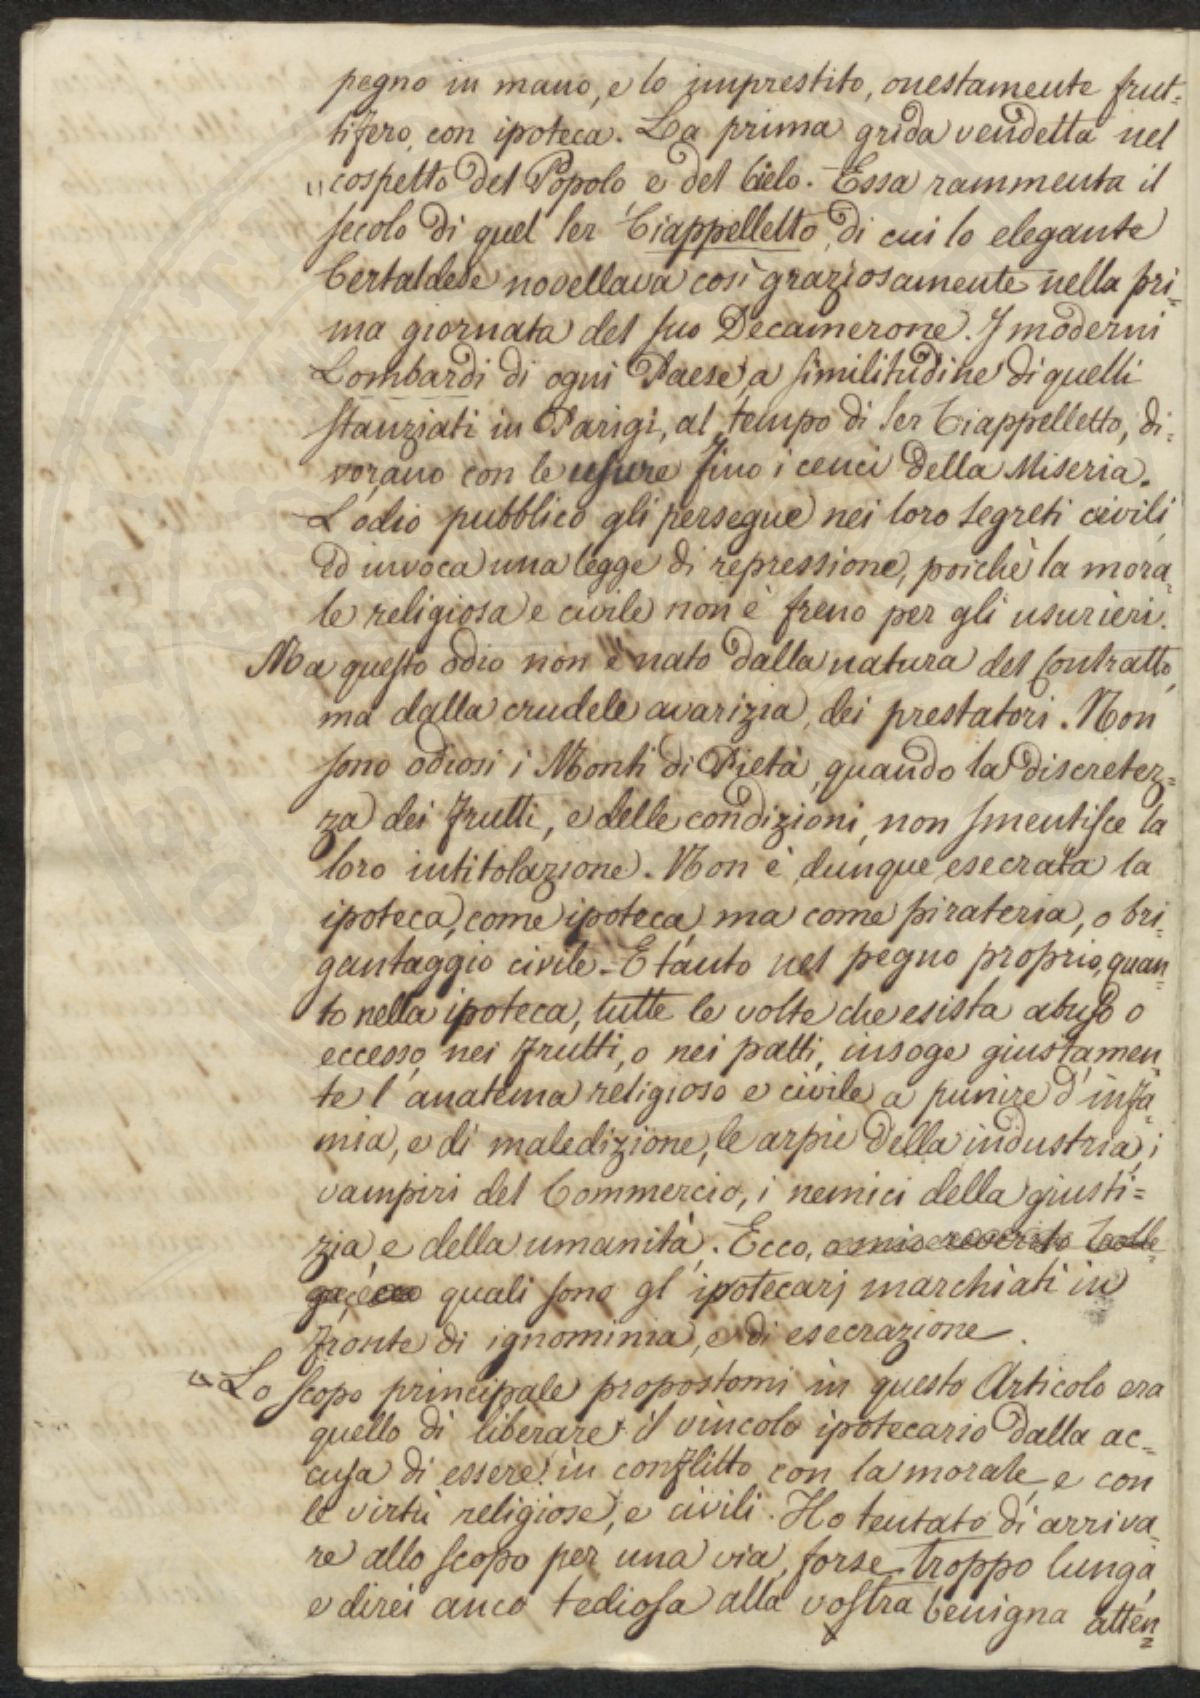 pegno in mano, e lo imprestito, onestamente frut=
tifero, con ipoteca. La prima grida vendetta nel
cospetto del Popolo, e del Cielo. Essa rammenta il
secolo di quel Ser Ciappelletto, di cui lo elegante
Certaldese novellava così graziosamente nella pri=
ma giornata del suo Decamerone. I moderni
Lombardi di ogni Paese, a similitudine di quelli
stanziati in Parigi, al tempo di Ser Ciappelletto, di=
vorano con le usure fino i cenci della Miseria.
L'odio pubblico gli persegue nei loro segreti civili,
ed invoca una legge di repressione, poichè la mora=
le religiosa e civile non è freno per gli usurieri.
Ma questo odio non è nato dalla natura del Contratto,
ma dalla crudele avarizia dei prestatori. Non
sono odiosi i Monti di Pietà, quando la discretez=
za dei frutti, e delle condizioni, non smentisce la
loro intitolazione. Non è dunque esecrata la
ipoteca, come ipoteca, ma come pirateria, o bri=
gantaggio civile. E tanto nel pegno proprio, quan=
to nella ipoteca, tutte le volte che esista abuso o
eccesso, nei frutti, o nei patti, insoge giustamen=
te l'anatema religioso e civile a punire d'infa=
mia, e di maledizione, le arpie della industria, i
vampiri del Commercio, i nemici della giusti=
zia, e della umanità. Ecco, o mio riverito Colle=
ga, ecco quali sono gl'ipotecarj marchiati in
fronte di ignominia, e di esecrazione.
Lo scopo principale propostomi in questo Articolo era
quello di liberare il vincolo ipotecario dalla ac=
cusa di essere in conflitto con la morale, e con
le virtù religiose, e civili. Ho tentato di arriva=
re allo scopo per una via, forse troppo lunga,
e direi anco tediosa alla vostra benigna atten=